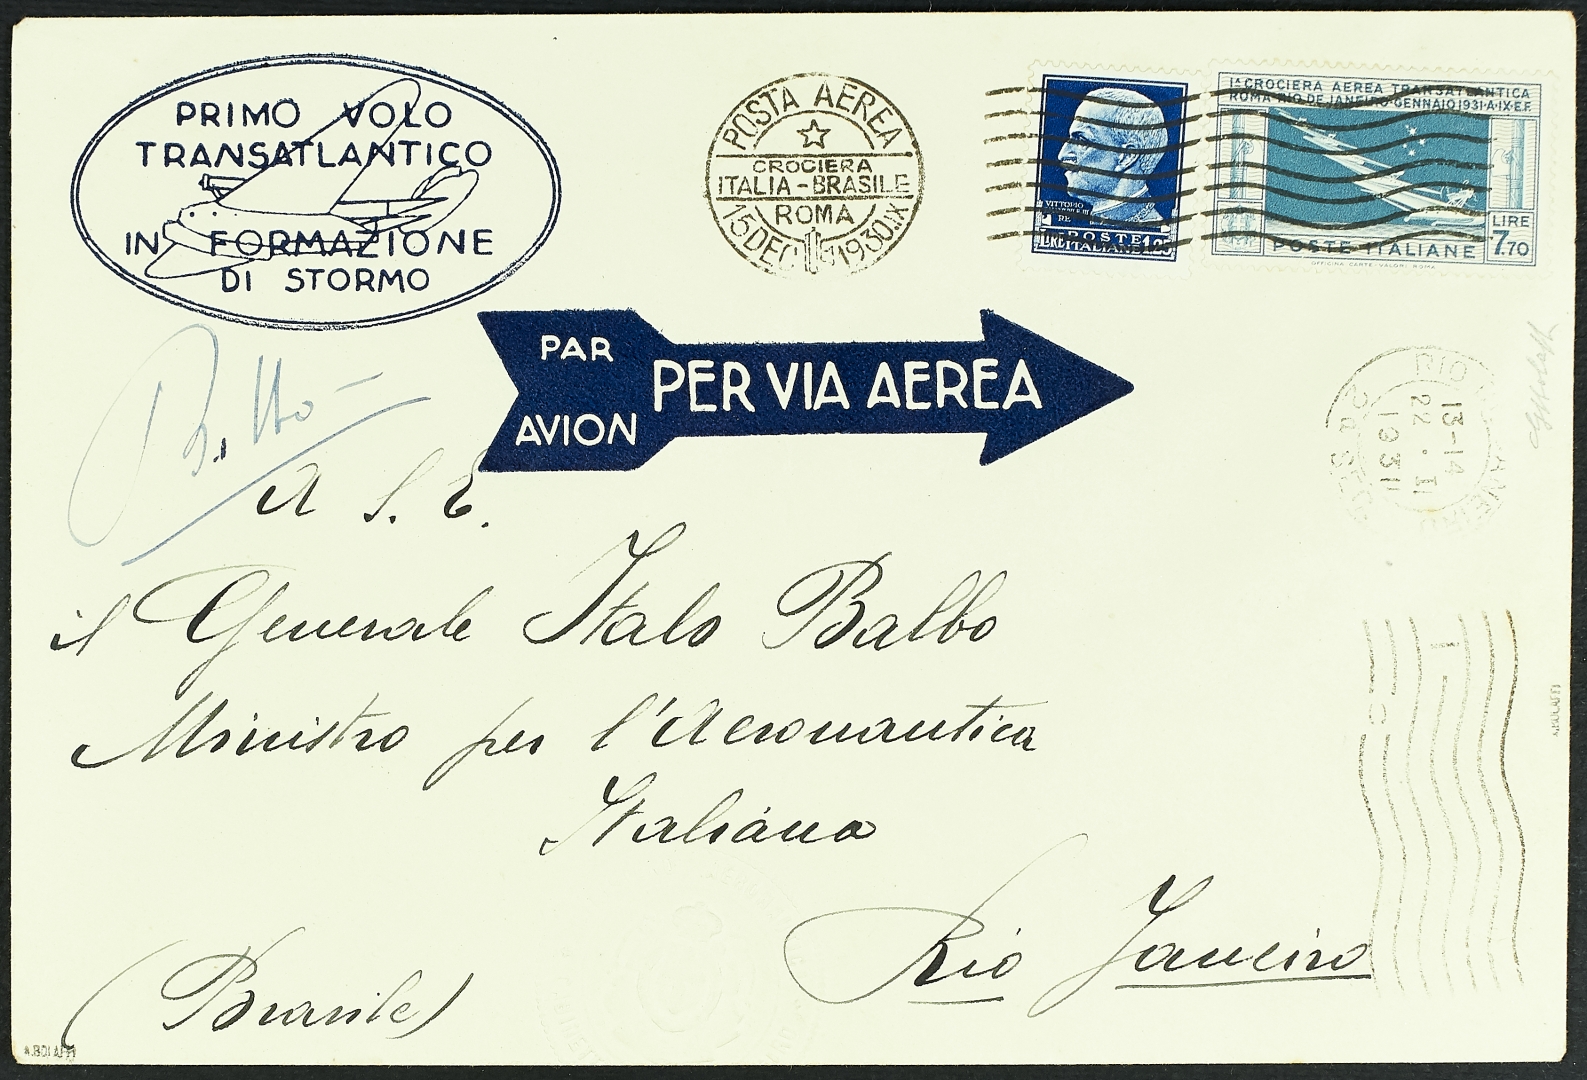 PRIMO VOLO
TRANSATLANTICO
IN FORMAZIONE
DI STORMO
POSTA AEREA
CROCIERA
ITALIA-BRASILE
ROMA
15 DEC 1930.IX
VITTORIO
POSTE
ITALIANE
1,25
Iª CROCIERA AEREA TRANSATLANTICA
ROMA-RIO DE JANEIRO-GENNAIO 1931-A·IX·E.F.
LIRE
7.70
POSTE ITALIANE
OFFICINA CARTE-VALORI ROMA
PAR
AVION
PER VIA AEREA
RIO
13-14
22 · II
1931
Balbo
A S. E.
il Generale Italo Balbo
Ministro per l'Aeronautica
Italiana
Rio Janeiro
(Brasile)
A.BOLAFFI
A.BOLAFFI